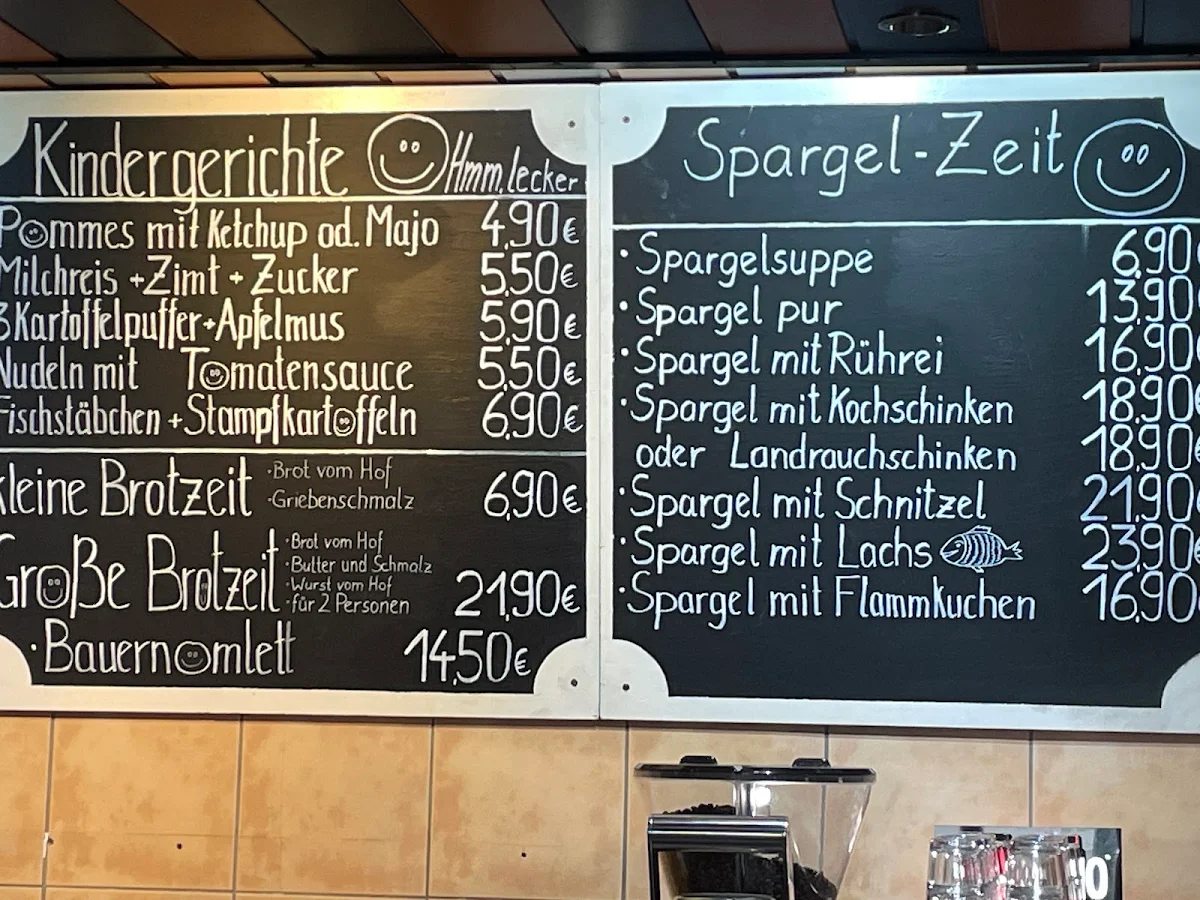 Kindergerichte Hmm, lecker
Pommes mit Ketchup od. Majo 4,90€
Milchreis +Zimt + Zucker 5,50€
3 Kartoffelpuffer+Apfelmus 5,90€
Nudeln mit Tomatensauce 5,50€
Fischstäbchen + Stampfkartoffeln 6,90€
kleine Brotzeit 6,90€
·Brot vom Hof
·Griebenschmalz
Große Brotzeit 21,90€
·Brot vom Hof
·Butter und Schmalz
·Wurst vom Hof
·für 2 Personen
·Bauernomlett 14,50€
Spargel-Zeit
·Spargelsuppe 6,90€
·Spargel pur 13,90€
·Spargel mit Rührei 16,90€
·Spargel mit Kochschinken 18,90€
oder Landrauchschinken 18,90€
·Spargel mit Schnitzel 21,90€
·Spargel mit Lachs 23,90€
·Spargel mit Flammkuchen 16,90